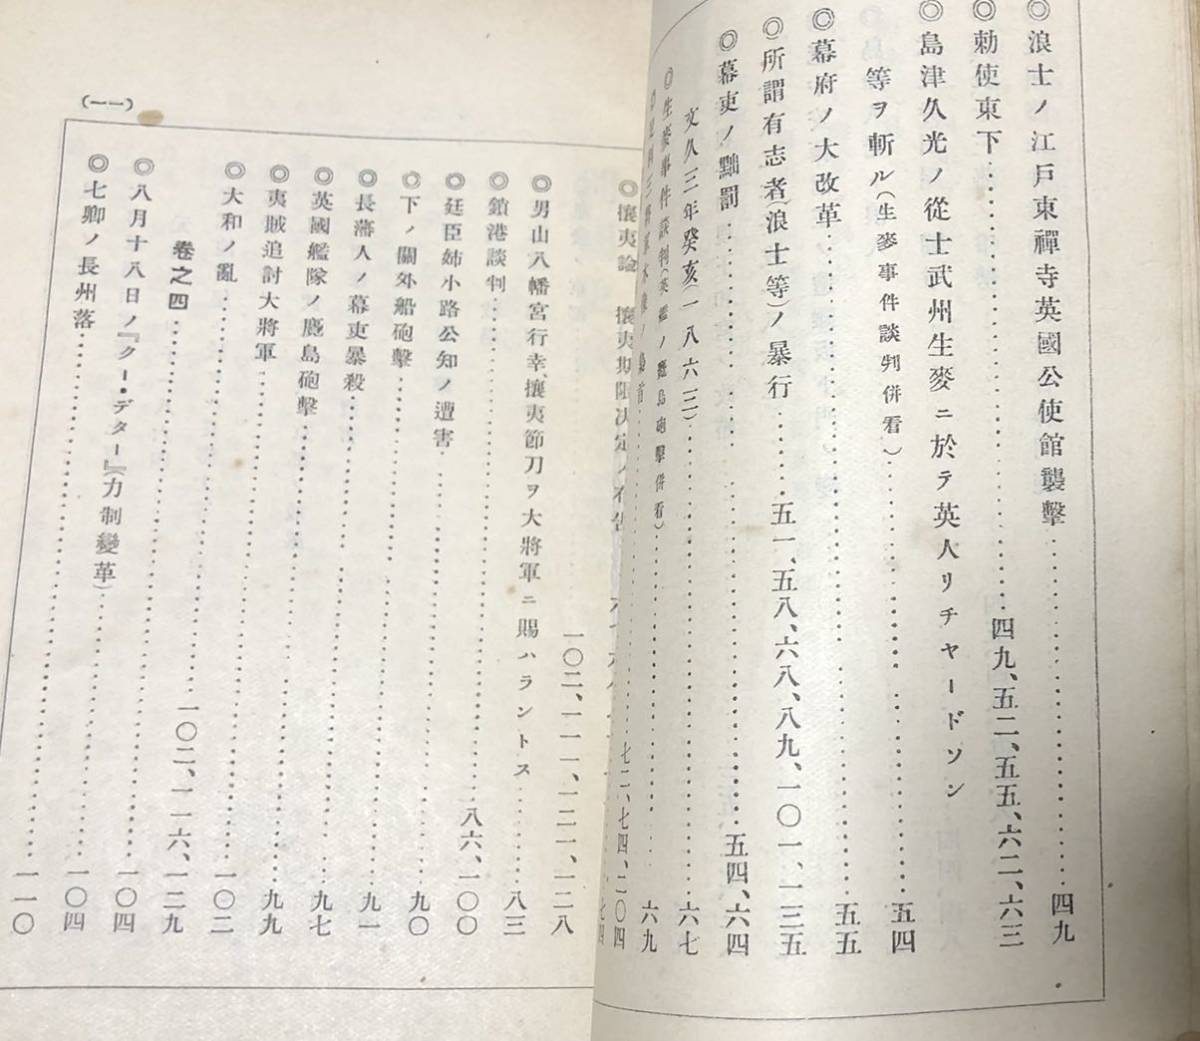 ◎浪士ノ江戸東禪寺英國公使館襲擊……四九
◎勅使東下……四九、五二、五五、六二、六三
◎島津久光ノ從士武州生麥ニ於テ英人リチヤードソン
等ヲ斬ル(生麥事件談判併看)……五四
◎幕府ノ大改革……五五
◎所謂有志者(浪士等)ノ暴行……五一、五八、六八、八九、一〇一、一三五
◎幕吏ノ黜罰……五四、六四
文久三年癸亥(一八六三)……六七
◎生麥事件談判(英艦ノ鹿島砲擊併看)……六九
七二、七四、二〇四
◎攘夷論 攘夷期限決定ノ
七四
一〇二、一一一、一二一、一二八
◎男山八幡宮行幸、攘夷節刀ヲ大將軍ニ賜ハラントス……八三
◎鎖港談判……八六、一〇〇
◎廷臣姉小路公知ノ遭害
◎下ノ關外船砲擊……九〇
◎長藩人ノ幕吏暴殺……九一
◎英國艦隊ノ鹿島砲擊……九七
◎夷賊追討大將軍……九九
◎大和ノ亂……一〇二
卷之四……一〇二、一一六、一二九
◎八月十八日ノ『クー・デター』(力制變革)……一〇四
◎七卿ノ長州落……一〇四
……一一〇
(一一)